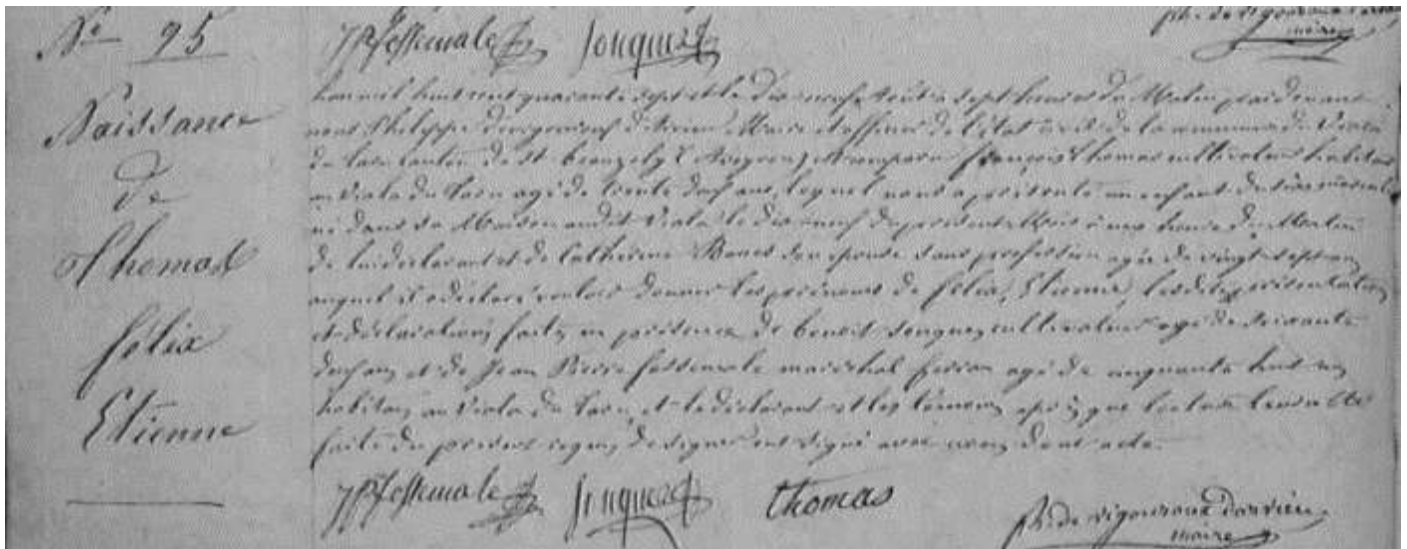 Nº 95
JPfessemale Jonquet
maire
Naissance
de
Thomas
Félix
Etienne
L'an mil huit cent quarante sept et le dix neuf Août à sept heures du Matin pardevant
nous Philippe devigouroux d'Arvieu Maire et officier de l'état civil de la commune de Viala
du tarn canton de St beauzely Aveyron, est comparu françois thomas cultivateur habitant
au Viala du tarn agé de trente ans, lequel nous a présenté un enfant de sexe masculin
né dans sa Maison audit Viala le dix neuf du présent Mois à une heure du Matin
de lui déclarant et de Catherine son épouse sans profession agée de vingt sept ans
auquel il a déclaré vouloir donner les prénoms de félix, Etienne, lesdites présentation
et déclaration faites en présence de benoit Jonquet cultivateur agé de soixante
ans et de Jean Pierre fessemale maréchal ferran agé de cinquante huit ans
habitans au Viala du tarn, et le déclarant et les témoins après que lecture leur a été
faite du présent requis de signer ont signé avec nous dont acte.
JPfessemale Jonquet thomas
Ph. de vigouroux d'arvieu
maire